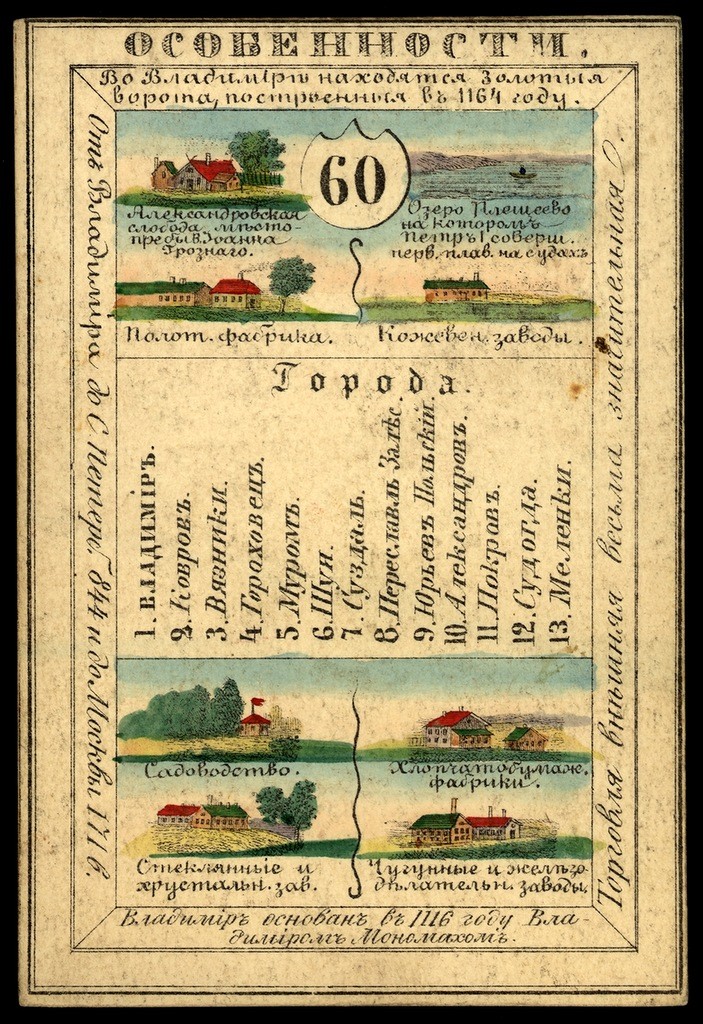 ОСОБЕННОСТИ.
Во Владимірѣ находятся Золотыя
ворота, построенныя въ 1164 году.
60
Александровская
слобода мѣсто-
пребыв. Іоанна
Грознаго.
Озеро Плещеево
на которомъ
Петръ I соверш.
перв. плав. на судахъ
Полот. фабрика.
Кожевен. заводы.
Города.
1. ВЛАДИМІРЪ.
2. Ковровъ.
3. Вязники.
4. Гороховецъ.
5. Муромъ.
6. Шуя.
7. Суздаль.
8. Переславль Залѣс.
9. Юрьевъ Польскій.
10. Александровъ.
11. Покровъ.
12. Судогда.
13. Меленки.
Садоводство.
Хлопчатобумаж.
фабрики.
Стеклянные и
хрустальн. зав.
Чугунные и желѣзо-
дѣлательн. заводы.
Владиміръ основанъ въ 1116 году Вла-
диміромъ Мономахомъ.
Отъ Владиміра до С. Петерб. 844 и до Москвы 171 в.
Торговля внѣшняя весьма значительная